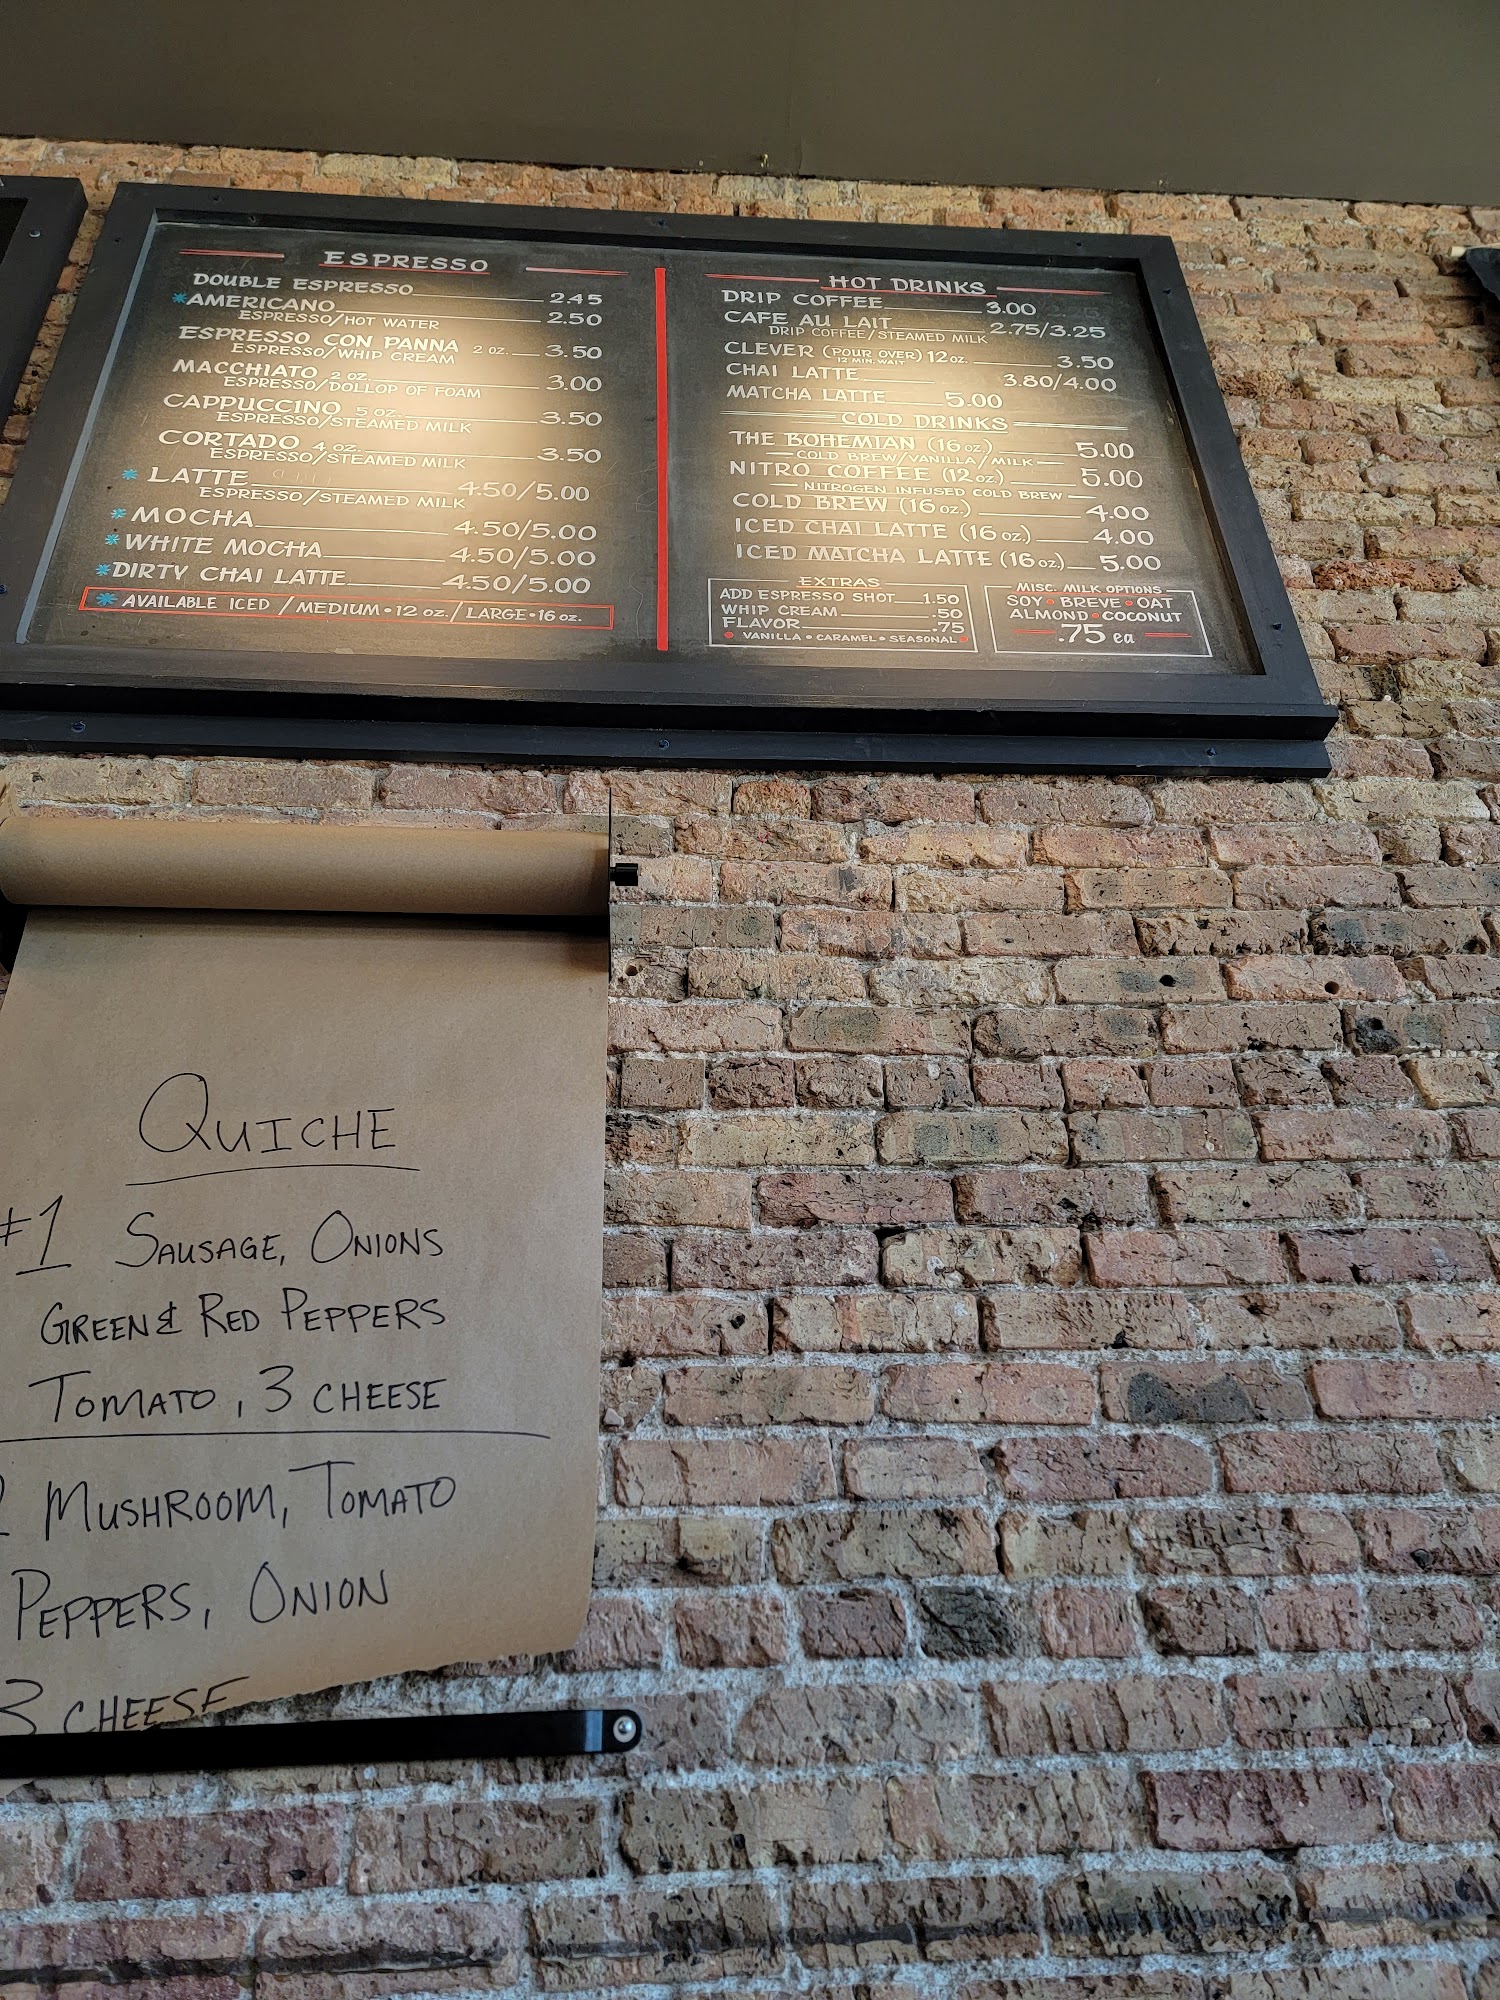 ESPRESSO
DOUBLE ESPRESSO 2.45
*AMERICANO 2.50
ESPRESSO/HOT WATER
ESPRESSO CON PANNA 2 oz. 3.50
ESPRESSO/WHIP CREAM
MACCHIATO 2 oz. 3.00
ESPRESSO/DOLLOP OF FOAM
CAPPUCCINO 5 oz. 3.50
ESPRESSO/STEAMED MILK
CORTADO 4 oz. 3.50
ESPRESSO/STEAMED MILK
* LATTE 4.50/5.00
ESPRESSO/STEAMED MILK
* MOCHA 4.50/5.00
* WHITE MOCHA 4.50/5.00
*DIRTY CHAI LATTE 4.50/5.00
* AVAILABLE ICED / MEDIUM • 12 oz. / LARGE • 16 oz.
HOT DRINKS
DRIP COFFEE 3.00
CAFE AU LAIT 2.75/3.25
DRIP COFFEE/STEAMED MILK
CLEVER (POUR OVER) 12 oz. 3.50
12 MIN. WAIT
CHAI LATTE 3.80/4.00
MATCHA LATTE 5.00
COLD DRINKS
THE BOHEMIAN (16 oz.) 5.00
COLD BREW/VANILLA/MILK
NITRO COFFEE (12 oz.) 5.00
NITROGEN INFUSED COLD BREW
COLD BREW (16 oz.) 4.00
ICED CHAI LATTE (16 oz.) 4.00
ICED MATCHA LATTE (16 oz.) 5.00
EXTRAS
ADD ESPRESSO SHOT 1.50
WHIP CREAM .50
FLAVOR .75
• VANILLA • CARAMEL • SEASONAL •
MISC. MILK OPTIONS
SOY • BREVE • OAT
ALMOND • COCONUT
.75 ea
QUICHE
#1 SAUSAGE, ONIONS
GREEN & RED PEPPERS
TOMATO, 3 CHEESE
2 MUSHROOM, TOMATO
PEPPERS, ONION
3 CHEESE